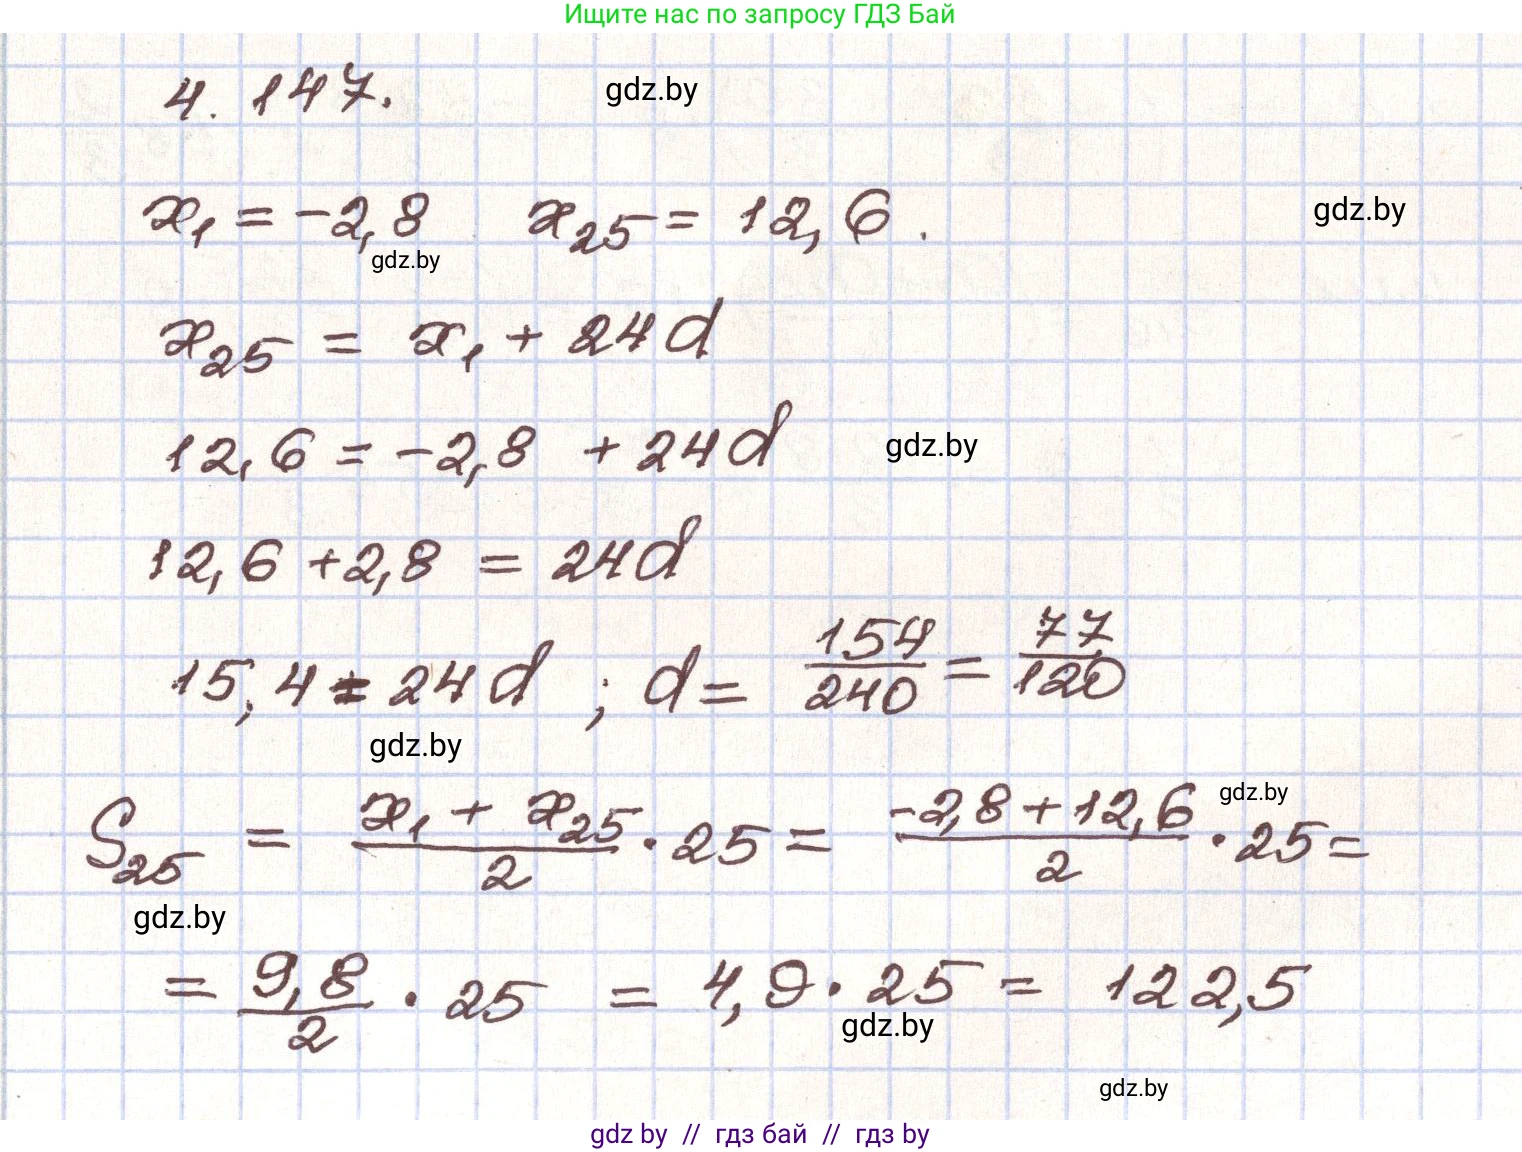 Ищите нас по запросу ГДЗ Бай
4.147. gdz.by
x₁ = -2,8 x₂₅ = 12,6. gdz.by
gdz.by
x₂₅ = x₁ + 24d
12,6 = -2,8 + 24d gdz.by
12,6 + 2,8 = 24d
15,4 = 24d ; d = 154/240 = 77/120
gdz.by
S₂₅ = (x₁ + x₂₅)/2 · 25 = (-2,8 + 12,6)/2 · 25 = gdz.by
gdz.by
= 9,8/2 · 25 = 4,9 · 25 = 122,5
gdz.by
gdz.by
gdz by // гдз бай // гдз by